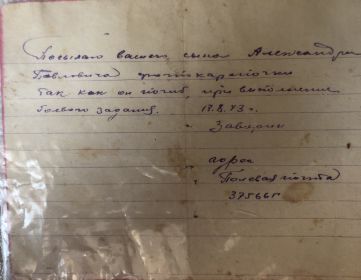 Посылаю вашего сына Александра
Павловича фотокарточки
так как он погиб, при выполнении
боевого задания. 17.8.43 г.
адрес
Полевая почта
37566г